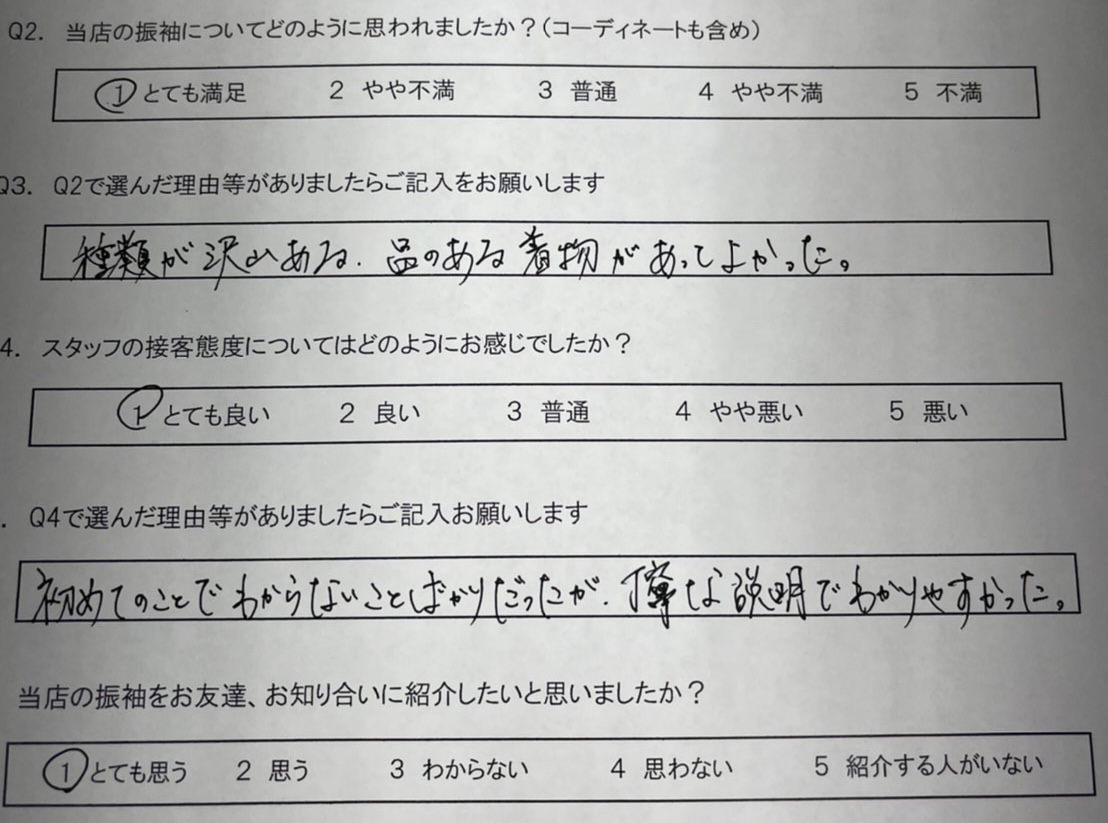 Q2. 当店の振袖についてどのように思われましたか？（コーディネートも含め）
① とても満足 2 やや不満 3 普通 4 やや不満 5 不満
Q3. Q2で選んだ理由等がありましたらご記入をお願いします
種類が沢山ある。品のある着物があってよかった。
4. スタッフの接客態度についてはどのようにお感じでしたか？
① とても良い 2 良い 3 普通 4 やや悪い 5 悪い
. Q4で選んだ理由等がありましたらご記入お願いします
初めてのことでわからないことばかりだったが、丁寧な説明でわかりやすかった。
当店の振袖をお友達、お知り合いに紹介したいと思いましたか？
① とても思う 2 思う 3 わからない 4 思わない 5 紹介する人がいない